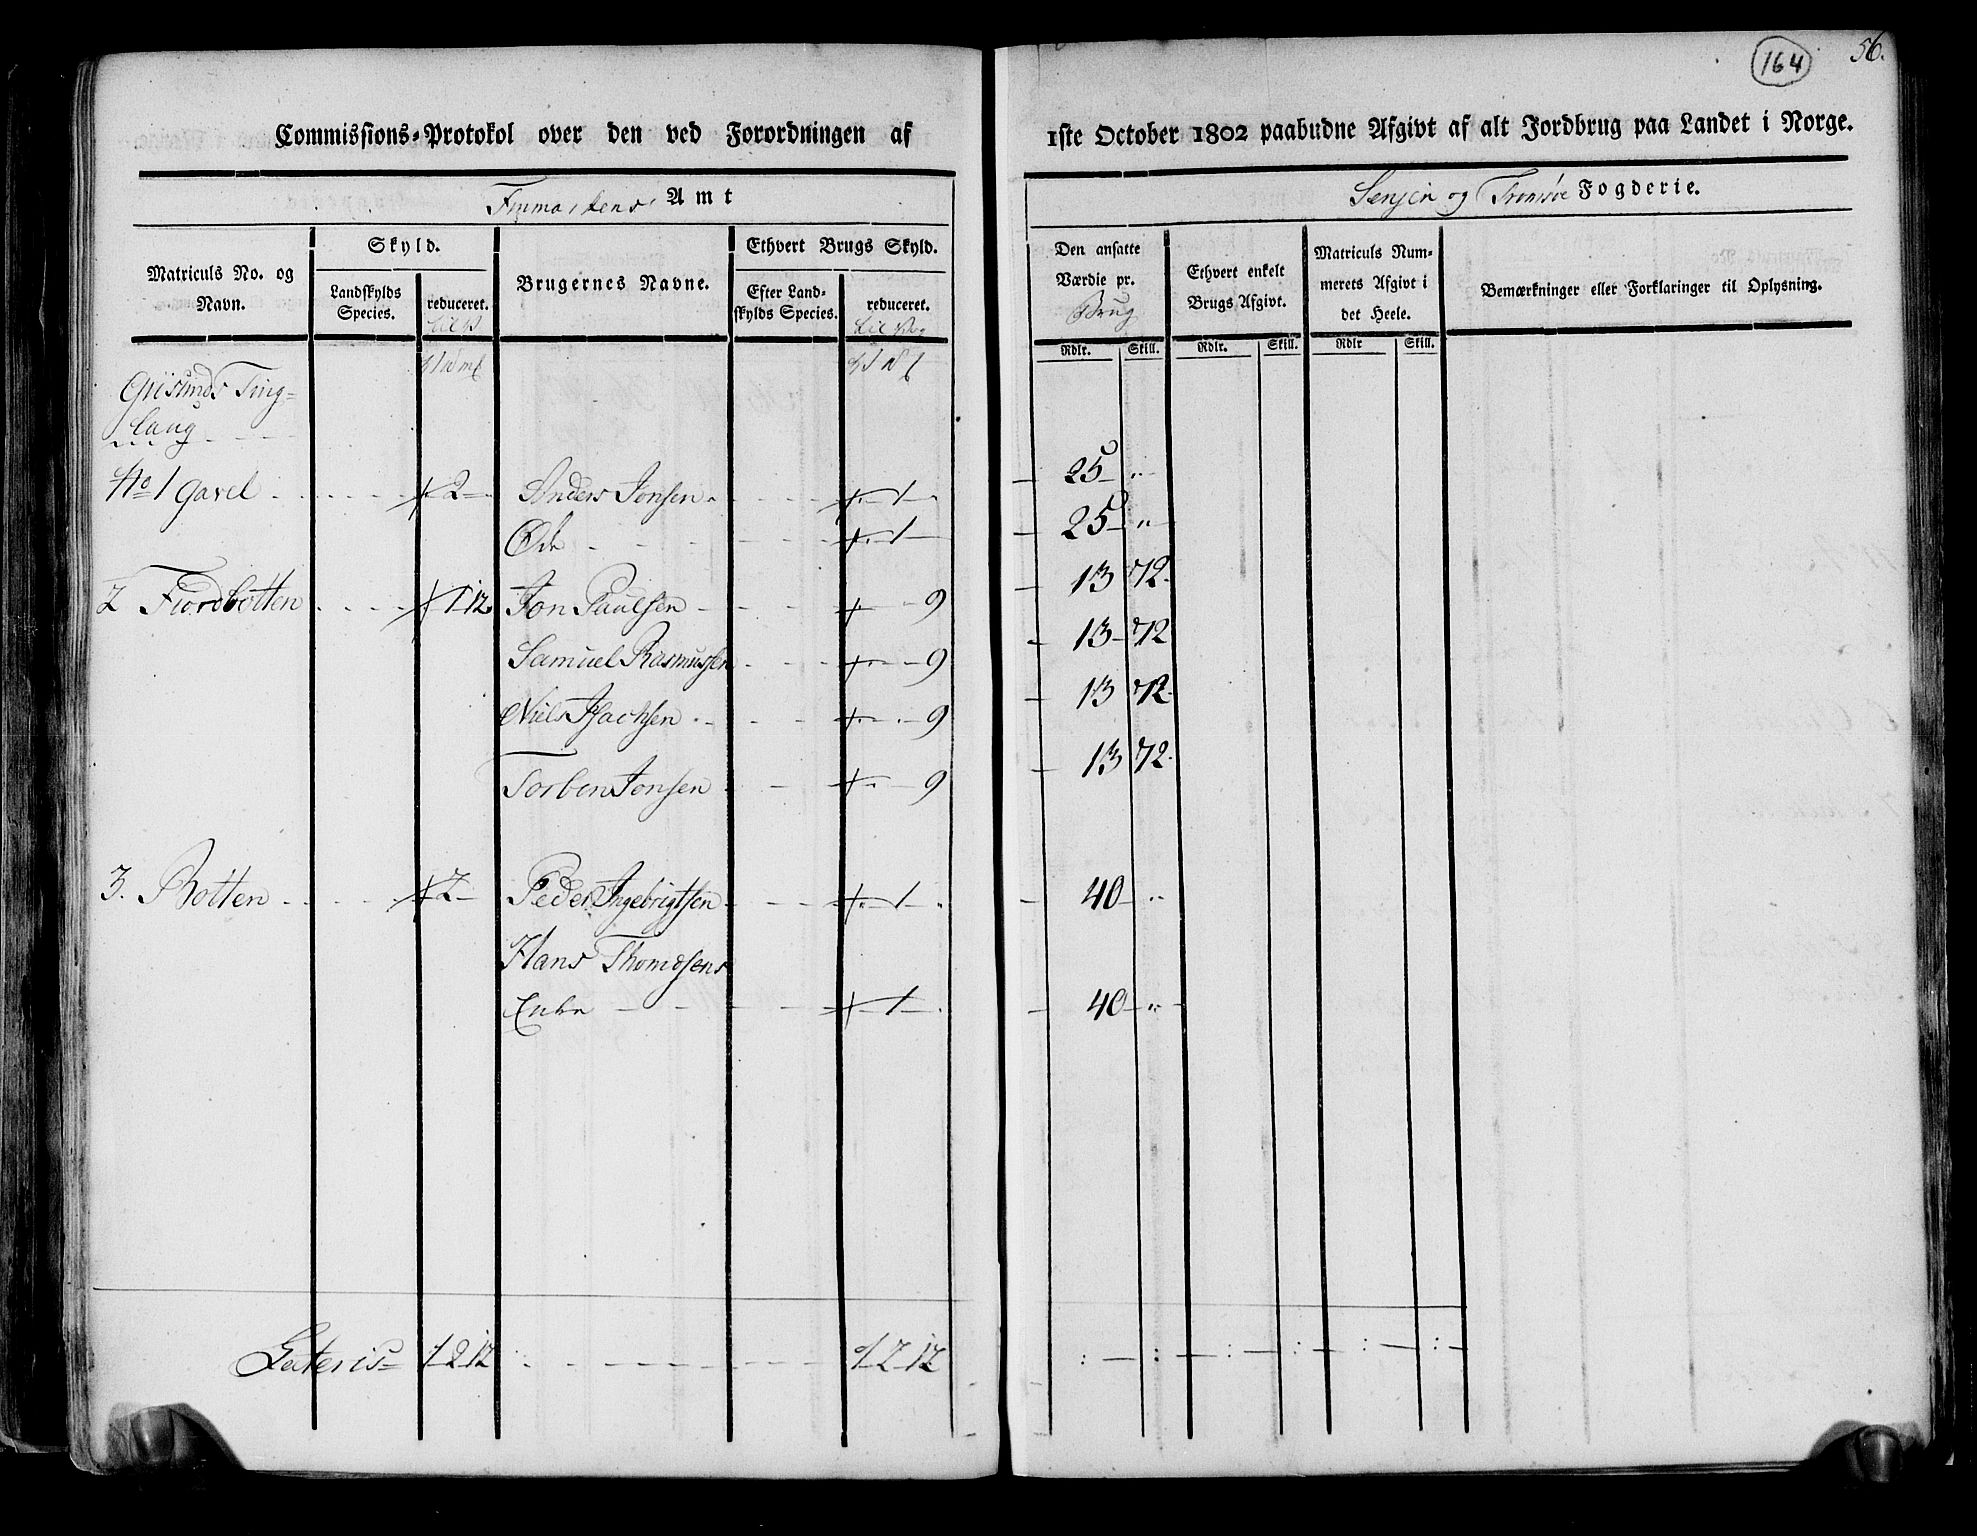 164
56.
Commissions-Protokol over den ved Forordningen af 1ste October 1802 paabudne Afgivt af alt Jordbrug paa Landet i Norge.
Finmarkens Amt
Senjen og Tromsøe Fogderie.
Matriculs No. og Navn.
Skyld.
Landskylds Species.
reduceret.
Brugernes Navne.
Ethvert Brugs Skyld.
Efter Landskylds Species.
reduceret.
Den ansatte Værdie pr. Brug
Rdlr. Skill.
Ethvert enkelt Brugs Afgivt.
Rdlr. Skill.
Matriculs Nummerets Afgivt i det Heele.
Rdlr Skill.
Bemærkninger eller Forklaringer til Oplysning.
Giisunds Ting-
laug
No 1 Gavel - 2 - Anders Jonsen - 1 - 25 "
Øde - 1 - 25 "
2 Fiordbotten - 1 12 Jon Paulsen - 9 - 13 72
Samuel Rasmussen - 9 - 13 72
Niels Isachsen - 9 - 13 72
Torben Jonsen - 9 - 13 72
3. Botten - 2 - Peder Ingebrigtsen - 1 - 40 "
Hans Thomesens
Enke - 1 - 40 "
Lateris 1 2 12 - 1 2 12